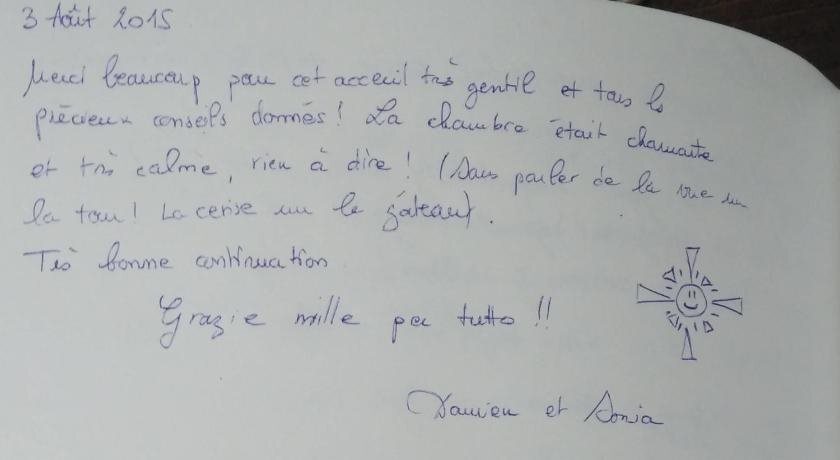 3 Août 2015
Merci beaucoup pour cet acceuil très gentil et tous les
précieux conseils donnés ! La chambre était charmante
et très calme, rien à dire ! (Sans parler de la vue sur
la tour ! La cerise sur le gâteau).
Très bonne continuation
Grazie mille per tutto !!
Damien et Sonia